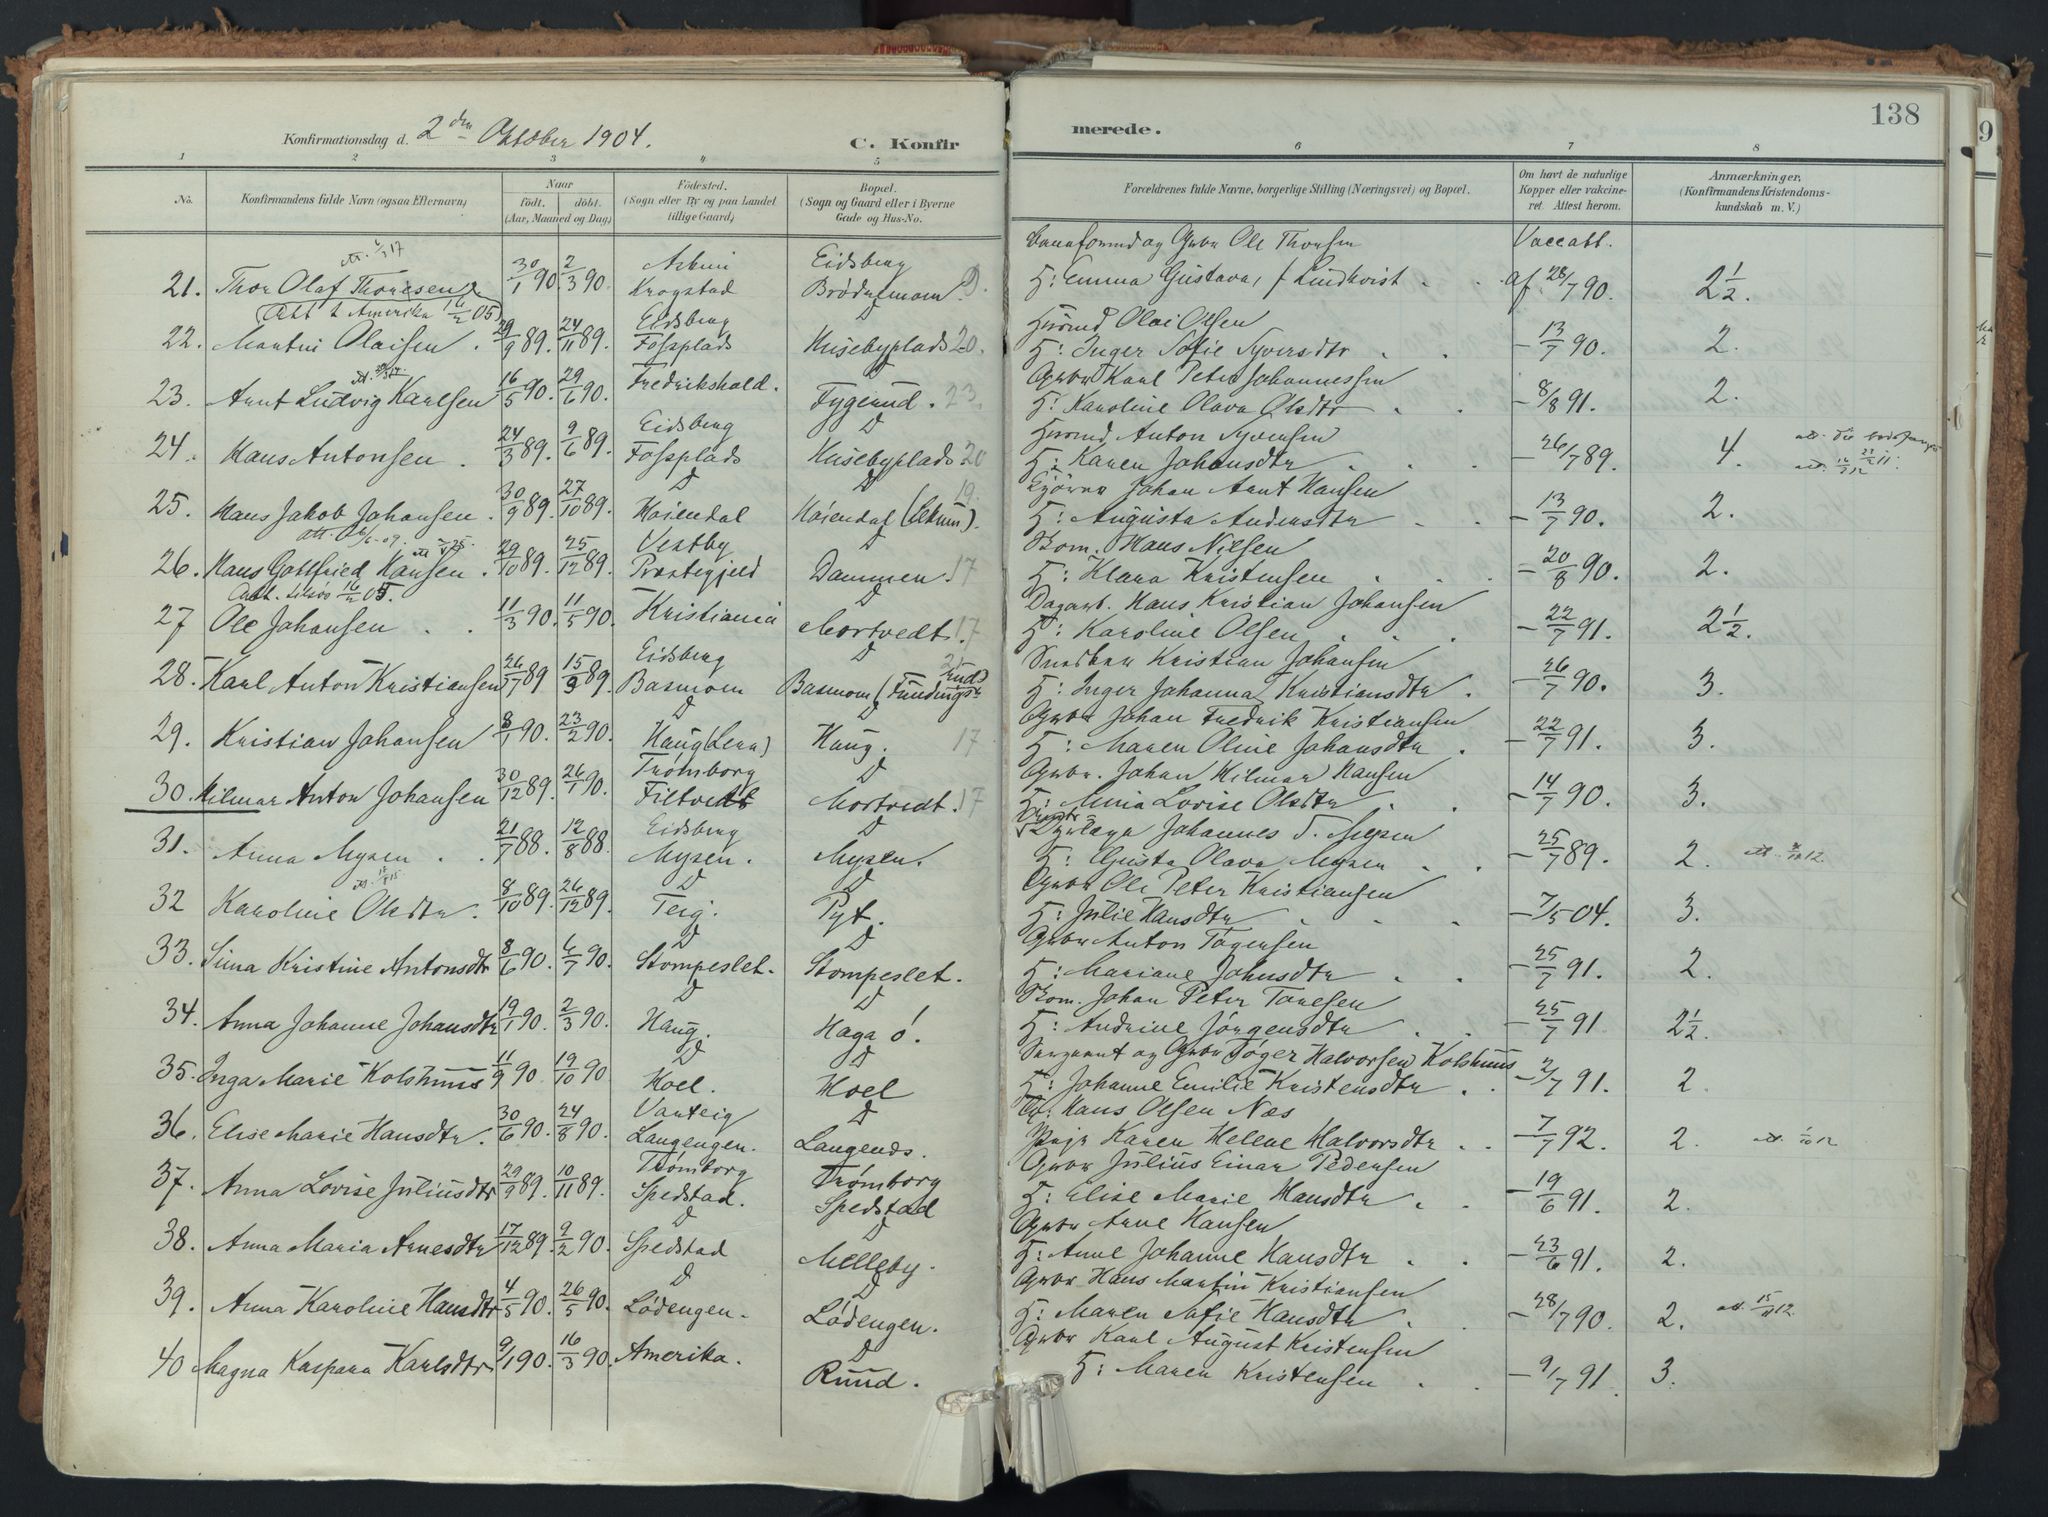 138
Konfirmationsdag d. 2den Oktober 1904.
C. Konfirmerede.
1 2 3 4 5 6 7 8
No. Konfirmandens fulde Navn (ogsaa Efternavn). Naar født. døbt. (Aar, Maaned og Dag) Fødested. (Sogn eller By og paa Landet tillige Gaard) Bopæl. (Sogn og Gaard eller i Byerne Gade og Hus-No. Forældrenes fulde Navne, borgerlige Stilling (Næringsvei) og Bopæl. Om havt de naturlige Kopper eller vakcineret. Attest herom. Anmærkninger. (Konfirmandens Kristendomskundskab m. V.)
Eidsberg Ole Thoresen Vaccatt.
21. Thor Olaf Thoresen 30/1 90 2/3 90. Krogstad H: Emma Gustava, f Lindkvist af 28/7 90. 2 1/2.
Att t Amerika 16/2 05 Eidsberg Olai Olsen
22. Martin Olaisen 29/9 89. 24/11 89. Fossplads Husebyplads 20. H: Inger Sofie Syversdtr - 13/7 90. 2.
Gbr Karl Peter Johannessen
23. Arnt Ludvig Karlsen 16/5 90. 29/6 90. Fredrikshald. Tygerud. 23. H: Karoline Olava Olsdtr - 8/8 91. 2.
Eidsberg D Husmd Anton Syversen
24. Hans Antonsen 24/3 89. 9/6 89. Fossplads Husebyplads 20 H: Karen Johansdtr - 26/7 89. 4.
D D 19. Johan Arnt Hansen
25. Hans Jakob Johansen 30/9 89. 27/10 89. Høiendal Høiendal (Lekum). H: Augusta Andersdtr - 13/7 90. 2.
Vestby D Skom. Hans Nilsen
26. Hans Gottfried Hansen 29/10 89. 25/12 89. Præstegjeld Dammen. 17 H: Klara Kristensen - 20/8 90. 2.
Att. tilsøs 16/2 05. D Dagarb. Hans Kristian Johansen
27 Ole Johansen 11/3 90. 11/5 90. Kristiania Mortvedt. 17 H: Karoline Olsen - 22/7 91. 2 1/2.
Eidsberg D Snedker Kristian Johansen
28. Karl Anton Kristiansen 26/7 89 15/9 89. Basmoem Basmoem H: Inger Johanna Kristiansdtr. - 26/7 90. 3.
D D Gbr Johan Fredrik Kristiansen
29. Kristian Johansen 8/1 90. 23/2 90. Haug (Lera) Haug. 17 H: Maren Oline Johansdtr - 22/7 91. 3.
Trømborg D Gbr. Johan Hilmar Hansen
30. Hilmar Anton Johansen 30/12 89. 26/1 90. Filtvedt Mortvedt. 17 H: Mina Lovise Olsdtr - 14/7 90. 3.
Eidsberg D Dyrlæge Johannes T. Mysen
31. Anna Mysen 21/7 88. 12/8 88. Mysen. Mysen. H: Gusta Olava Mysen - 25/7 89. 2.
D D Gbr Ole Peter Kristiansen
32 Karoline Olsdtr. 8/10 89. 26/12 89. Teig. Pyt. H: Julie Hansdtr - 7/5 04. 3.
D D Gbr Anton Tøgersen
33. Sina Kristine Antonsdtr 8/6 90. 6/7 90. Stompeslet. Stompeslet. H: Mariane Johansdtr - 25/7 91. 2.
D D Skom. Johan Peter Toresen
34. Anna Johanne Johansdtr 19/1 90. 2/3 90. Haug. Haga ø. H: Andrine Jørgensdtr - 25/7 91 2 1/2.
D D Sergeant og Gbr Tøger Halvorsen Kolshuus
35. Inga Marie Kolshuus 11/9 90. 19/10 90 Hoel. Hoel H: Johanne Emilie Kristensdtr - 2/7 91. 2
Varteig D Hans Olsen Næs
36. Elise Marie Hansdtr. 30/6 90. 24/8 90. Langengen. Langends. Pige Karen Helene Halvorsdtr - 7/7 92. 2. att. 1/10 12
Trømborg Trømborg Gbr Julius Einar Pedersen
37. Anna Lovise Juliusdtr 29/9 89. 10/11 89. Spedstad. Spedstad H: Elise Marie Hansdtr - 19/6 91. 2.
D D Gbr Arne Hansen
38. Anna Maria Arnesdtr 17/12 89. 9/2 90. Spedstad Melleby. H: Anne Johanne Hansdtr - 23/6 91. 2.
D D Gbr Hans Martin Kristiansen
39. Anna Karoline Hansdtr 4/5 90. 26/5 90. Lødengen. Lødengen. H: Maren Sofie Hansdtr - 28/7 90. 2.
D Gbr Karl August Kristensen
40 Magna Kaspara Karlsdtr 9/1 90. 16/3 90. Amerika. Ruud. H: Maren Kristensen - 9/7 91. 3.